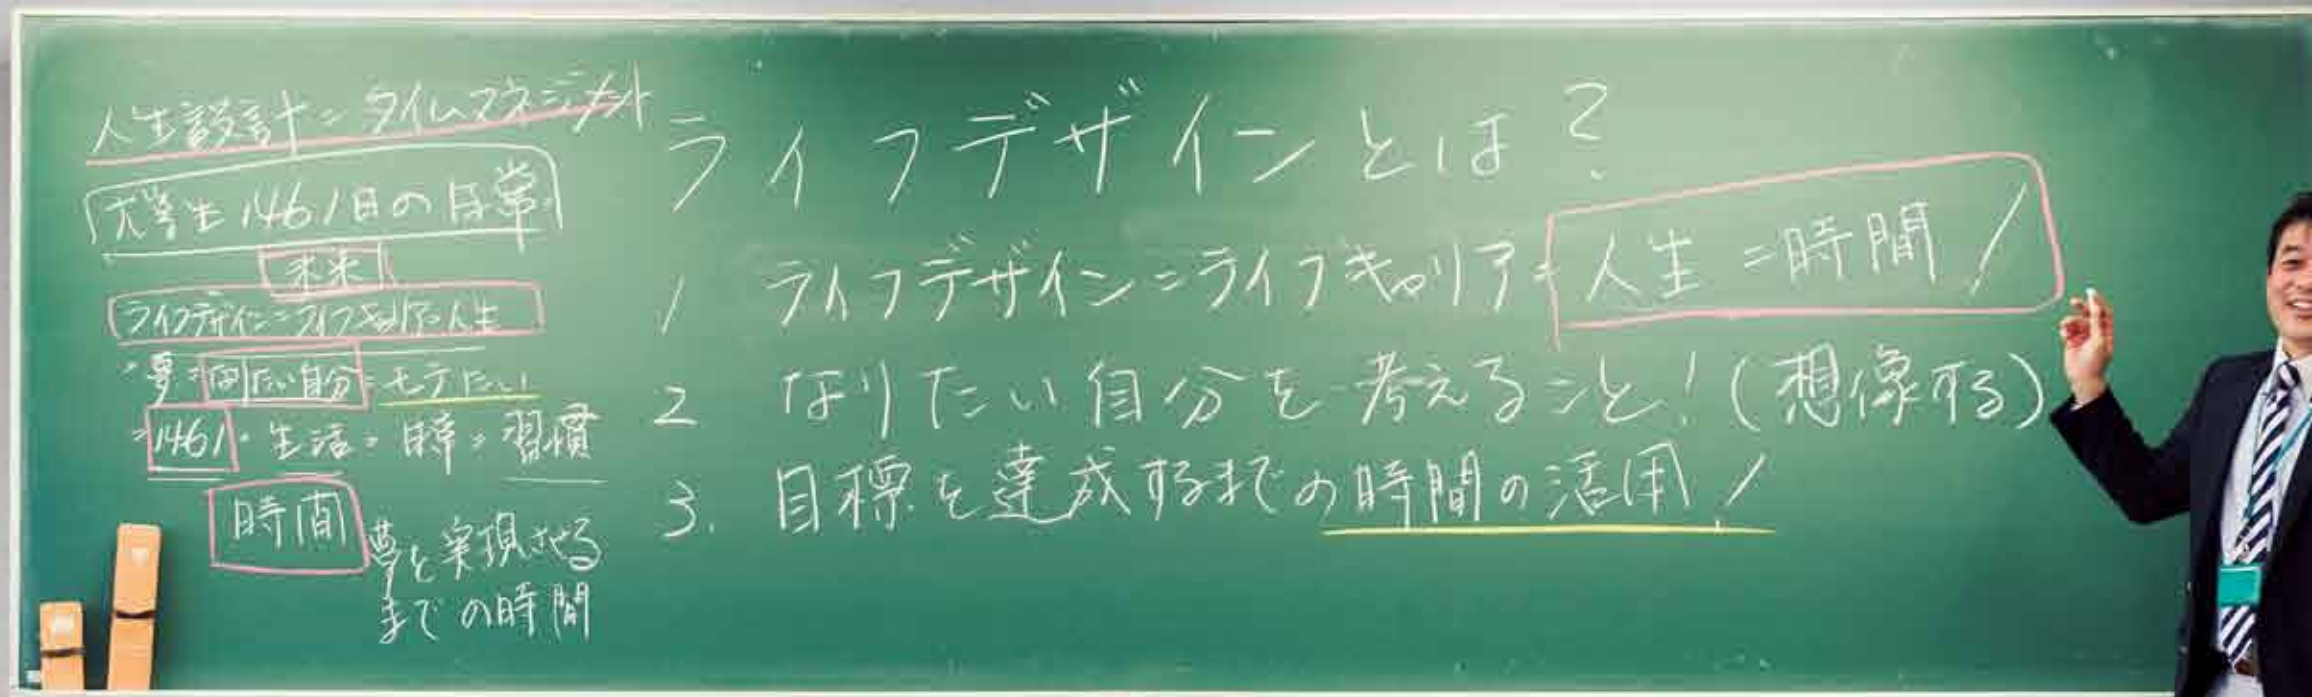 人生設計=タイムマネジメント
大学生1461日の日常
未来
ライフデザイン=ライフキャリア=人生
・夢=なりたい自分=モテたい
=1461・生活=日常=習慣
時間
夢を実現させる
までの時間
ライフデザインとは?
1 ライフデザイン=ライフキャリア=人生=時間!
2 なりたい自分を考えること!(想像する)
3. 目標を達成するまでの時間の活用!